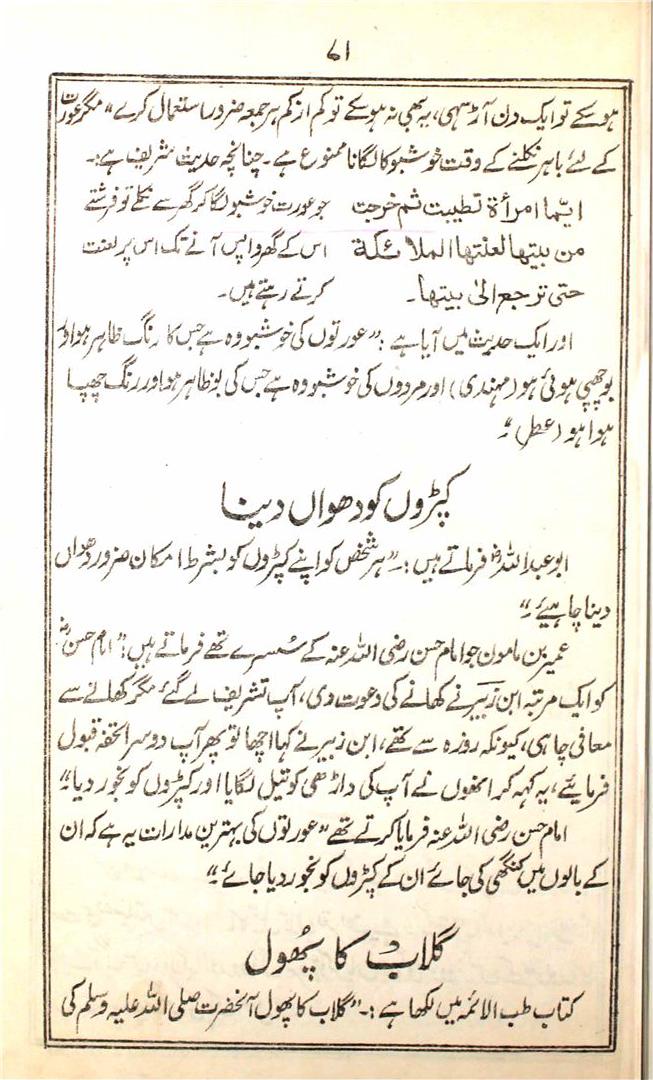 ۷۱
ہو سکے تو ایک دن آڑ سہی، یہ بھی نہ ہو سکے تو کم از کم ہر جمعہ ضرور استعمال کرے" مگر عورت
کے لئے باہر نکلنے کے وقت خوشبو کا لگانا ممنوع ہے۔ چنانچہ حدیث شریف ہے:۔
ایّما امرأة تطیبت ثم خرجت جو عورت خوشبو لگا کر گھر سے نکلے تو فرشتے
من بیتھا لعنتھا الملائکة اس کے گھر واپس آنے تک اس پر لعنت
حتی ترجع الیٰ بیتھا۔ کرتے رہتے ہیں۔
اور ایک حدیث میں آیا ہے: "عورتوں کی خوشبو وہ ہے جس کا رنگ ظاہر ہو اور
بو چھپی ہوئی ہو (مہندی) اور مردوں کی خوشبو وہ ہے جس کی بو ظاہر ہو اور رنگ چھپا
ہوا ہو (عطر)"۔
کپڑوں کو دھواں دینا
ابو عبداللہؓ فرماتے ہیں:۔ "ہر شخص کو اپنے کپڑوں کو بشرط امکان ضرور دھواں
دینا چاہیئے۔"
عمیر بن مامون جو امام حسن رضی اللہ عنہ کے سُسرے تھے فرماتے ہیں: "امام حسنؓ
کو ایک مرتبہ ابن زبیر نے کھانے کی دعوت دی، آپ تشریف لے گئے مگر کھانے سے
معافی چاہی، کیونکہ روزہ سے تھے، ابن زبیر نے کہا اچھا تو پھر آپ دوسرا تحفہ قبول
فرمایئے، یہ کہہ کر انھوں نے آپ کی داڑھی کو تیل لگایا اور کپڑوں کو بخور دیا۔"
امام حسن رضی اللہ عنہ فرمایا کرتے تھے "عورتوں کی بہترین مدارات یہ ہے کہ ان
کے بالوں میں کنگھی کی جائے ان کے کپڑوں کو بخور دیا جائے۔"
گلاب کا پھُول
کتاب طب الائمہ میں لکھا ہے:۔ "گلاب کا پھول آنحضرت صلی اللہ علیہ وسلم کی